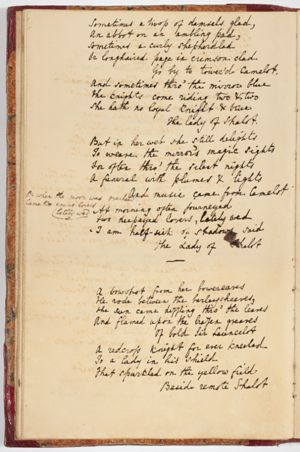 Sometimes a troop of damsels glad,
An abbot on an ambling pad,
Sometimes a curly shepherdlad
Or longhaired page in crimson clad
Go by to tower'd Camelot.
And sometimes thro' the mirror blue
The Knights come riding two & two
She hath no loyal Knight & true
The Lady of Shalot.
But in her web she still delights
To weave the mirror's magic sights
For often thro' the silent nights
A funeral with plumes & lights
And music came from Camelot
Or when the moon was overhead
Came two young lovers
lately wed
At morning often journeyed
Two young lovers, lately wed
I am half-sick of shadows said
The Lady of Shalot
A bowshot from her bowereaves
He rode between the barleysheaves
The sun came dazzling thro' the leaves
And flamed upon the brazen greaves
Of bold Sir Launcelot
A redcross Knight for ever kneeled
To a lady in his shield
That sparkled on the yellow field
Beside remote Shalot